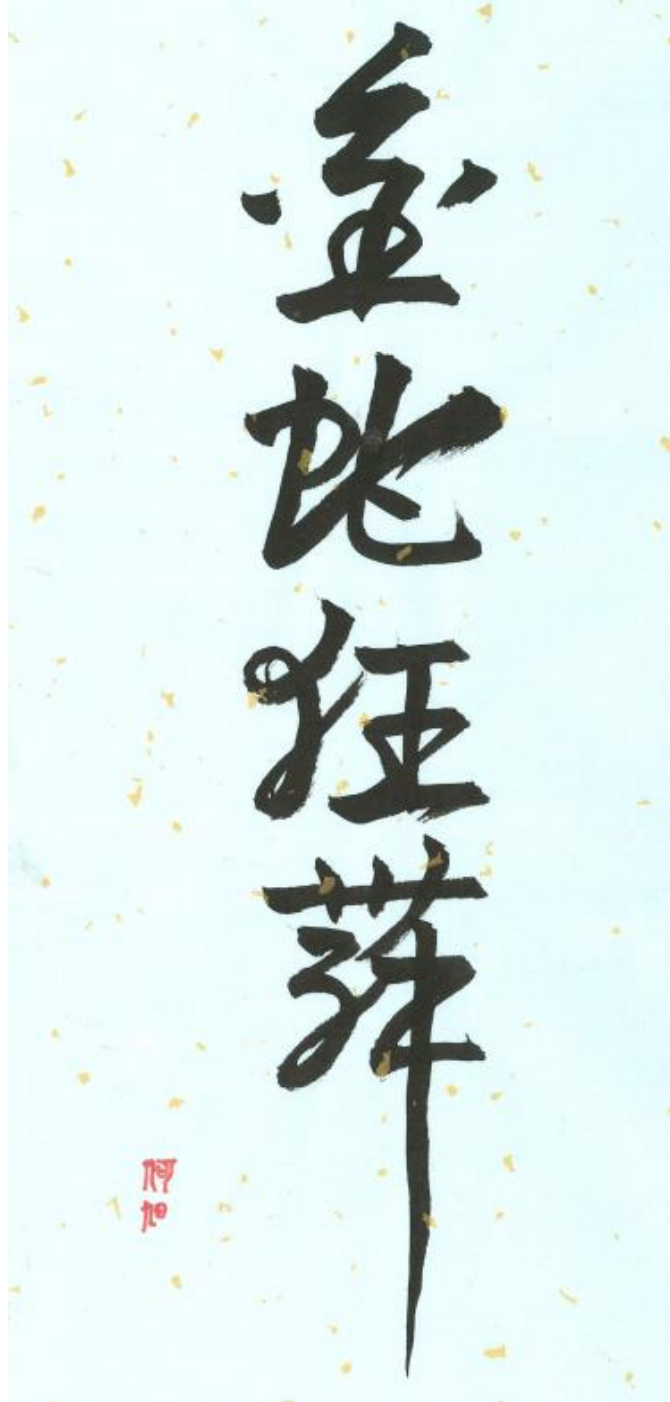 金蛇狂舞
何旭